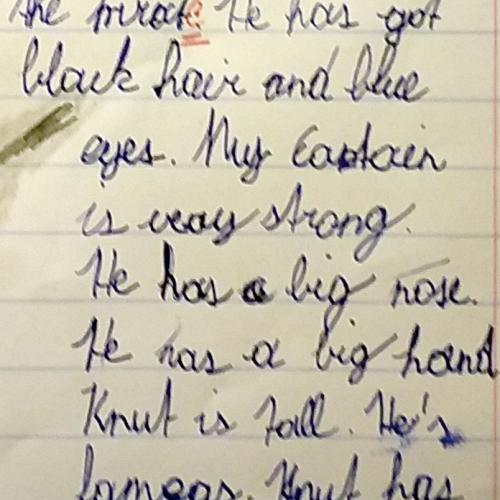 the pirate. He has got
black hair and blue
eyes. My Captain
is veay strong.
He has a big nose.
He has a big hand
Knut is tall. He's
fameas. Knut has